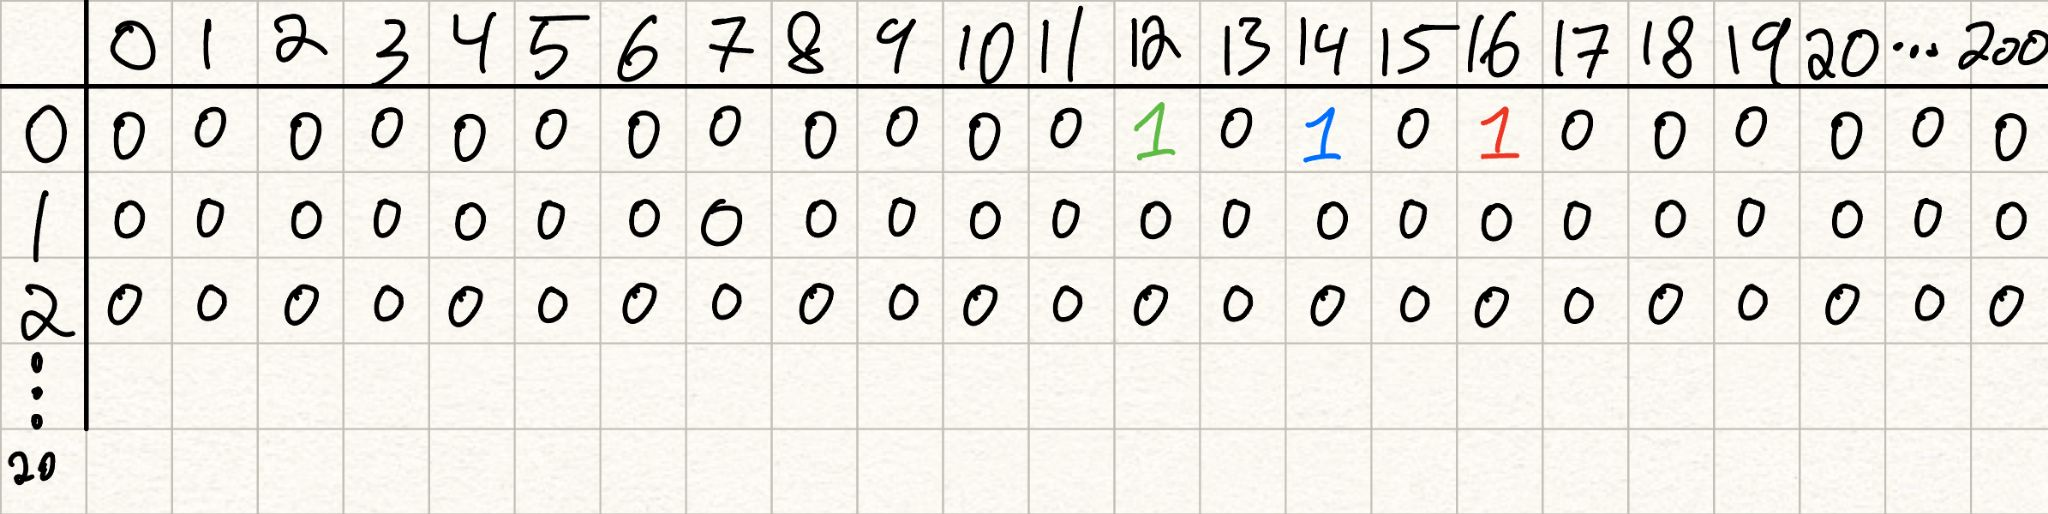 0 1 2 3 4 5 6 7 8 9 10 11 12 13 14 15 16 17 18 19 20 ... 200
0 0 0 0 0 0 0 0 0 0 0 0 0 1 0 1 0 1 0 0 0 0 0 0
1 0 0 0 0 0 0 0 0 0 0 0 0 0 0 0 0 0 0 0 0 0 0 0
2 0 0 0 0 0 0 0 0 0 0 0 0 0 0 0 0 0 0 0 0 0 0 0
⋮
20